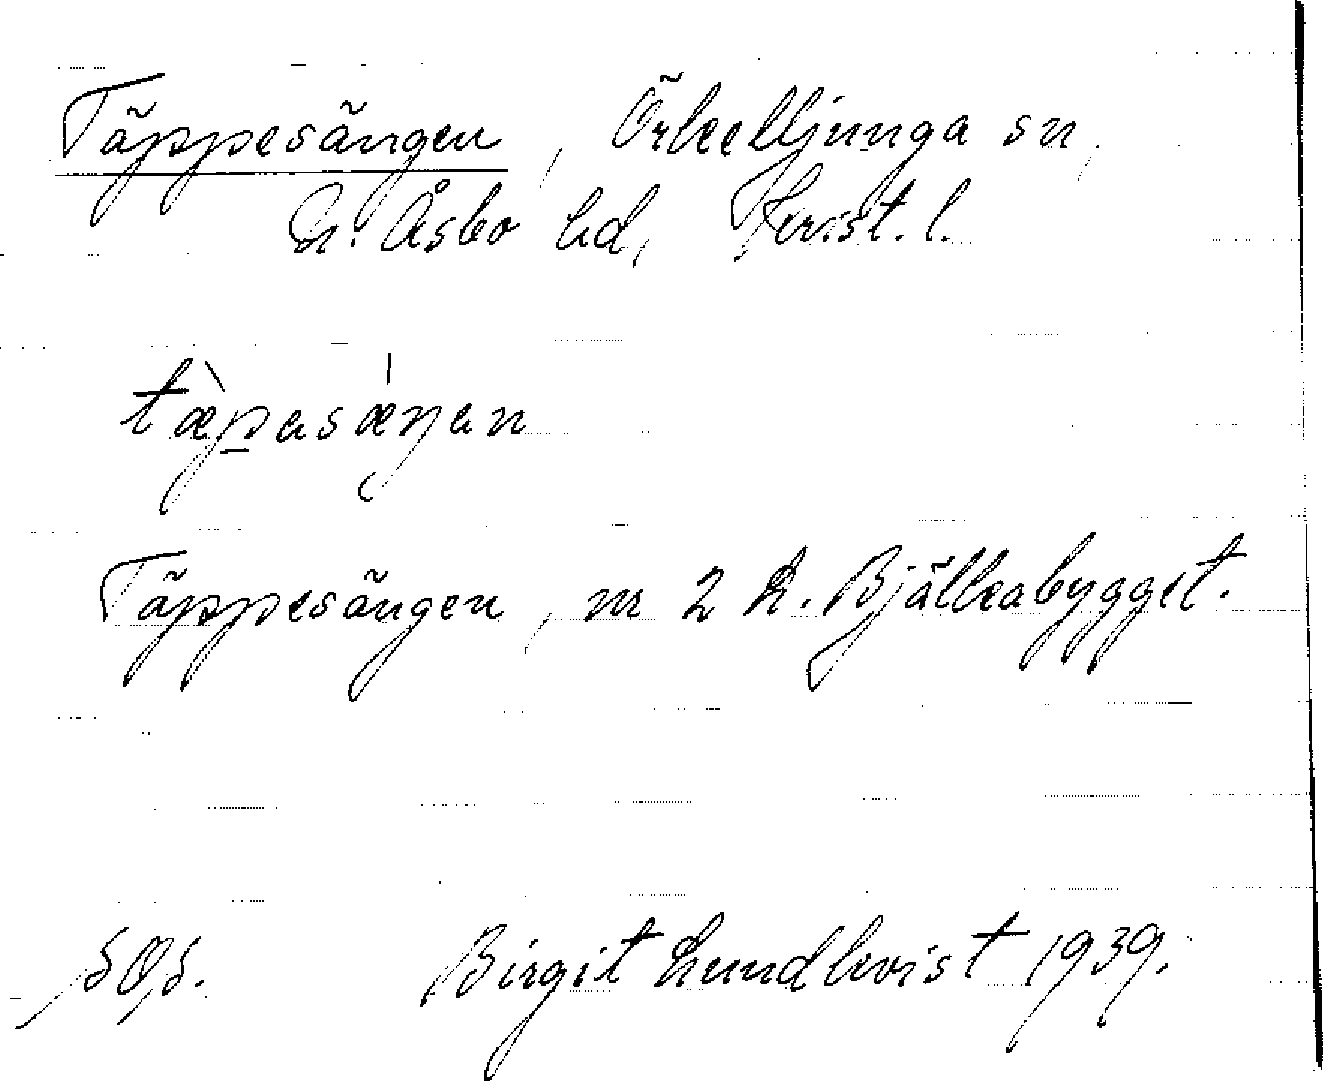 Täppesängen, Örkelljunga sn,
N. Åsbo hd, Krist. l.
tæ̀pasæ̀ŋan
Täppesängen, nr 2 L. Bjälkabygget.
Birgit Lundkvist 1939.